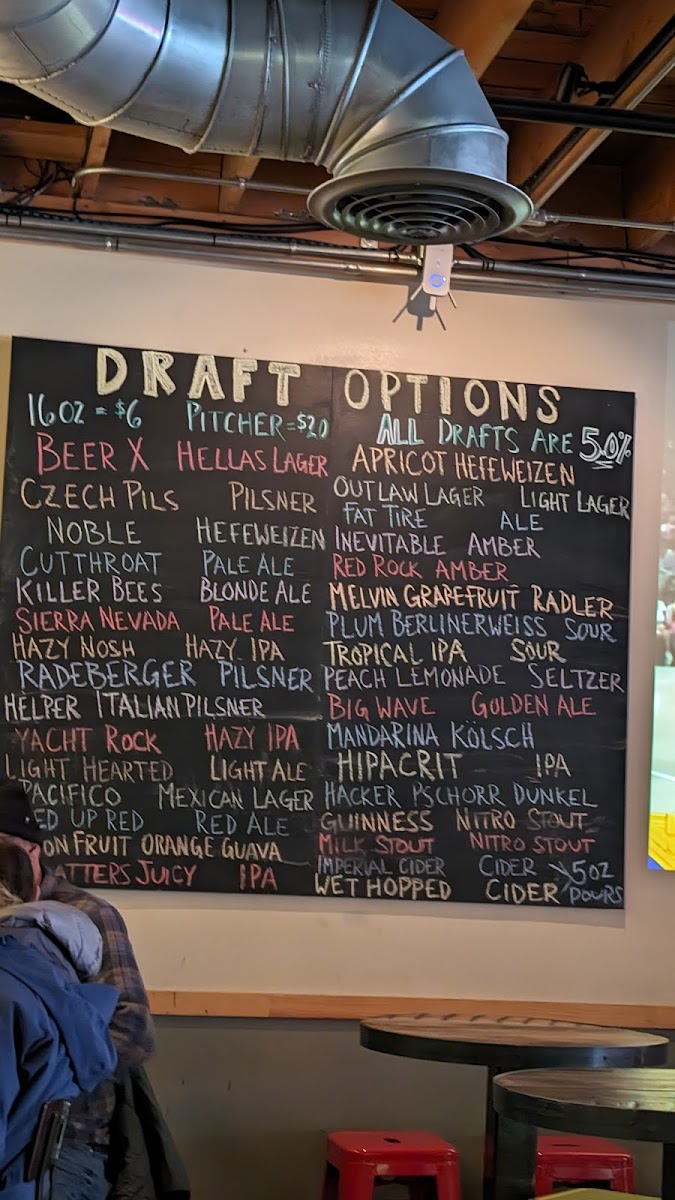 DRAFT OPTIONS
16 OZ = $6 PITCHER = $20
BEER X HELLAS LAGER
CZECH PILS PILSNER
NOBLE HEFEWEIZEN
CUTTHROAT PALE ALE
KILLER BEES BLONDE ALE
SIERRA NEVADA PALE ALE
HAZY NOSH HAZY IPA
RADEBERGER PILSNER
HELPER ITALIAN PILSNER
YACHT ROCK HAZY IPA
LIGHT HEARTED LIGHT ALE
PACIFICO MEXICAN LAGER
ED UP RED RED ALE
ON FRUIT ORANGE GUAVA
ATTERS JUICY IPA
ALL DRAFTS ARE 5.0%
APRICOT HEFEWEIZEN
OUTLAW LAGER LIGHT LAGER
FAT TIRE ALE
INEVITABLE AMBER
RED ROCK AMBER
MELVIN GRAPEFRUIT RADLER
PLUM BERLINERWEISS SOUR
TROPICAL IPA SOUR
PEACH LEMONADE SELTZER
BIG WAVE GOLDEN ALE
MANDARINA KÖLSCH
HIPACRIT IPA
HACKER PSCHORR DUNKEL
GUINNESS NITRO STOUT
MILK STOUT NITRO STOUT
IMPERIAL CIDER CIDER
WET HOPPED CIDER
5OZ
POURS